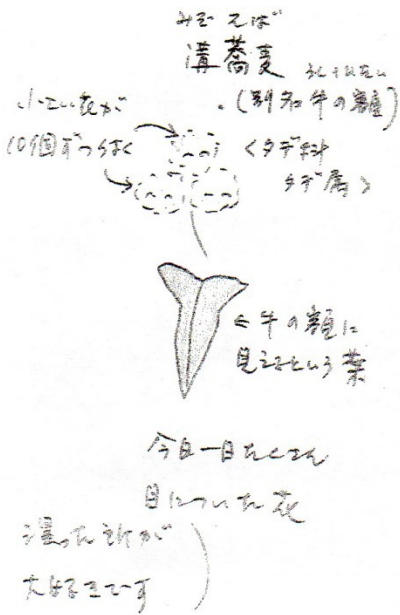 みぞそば
溝蕎麦
うしのひたい
(別名牛の額)
<タデ科
タデ属>
小さい花が
10個ずつほど
←牛の額に
見えるという葉
今日一日たくさん
目についた花
湿った所が
大好きです